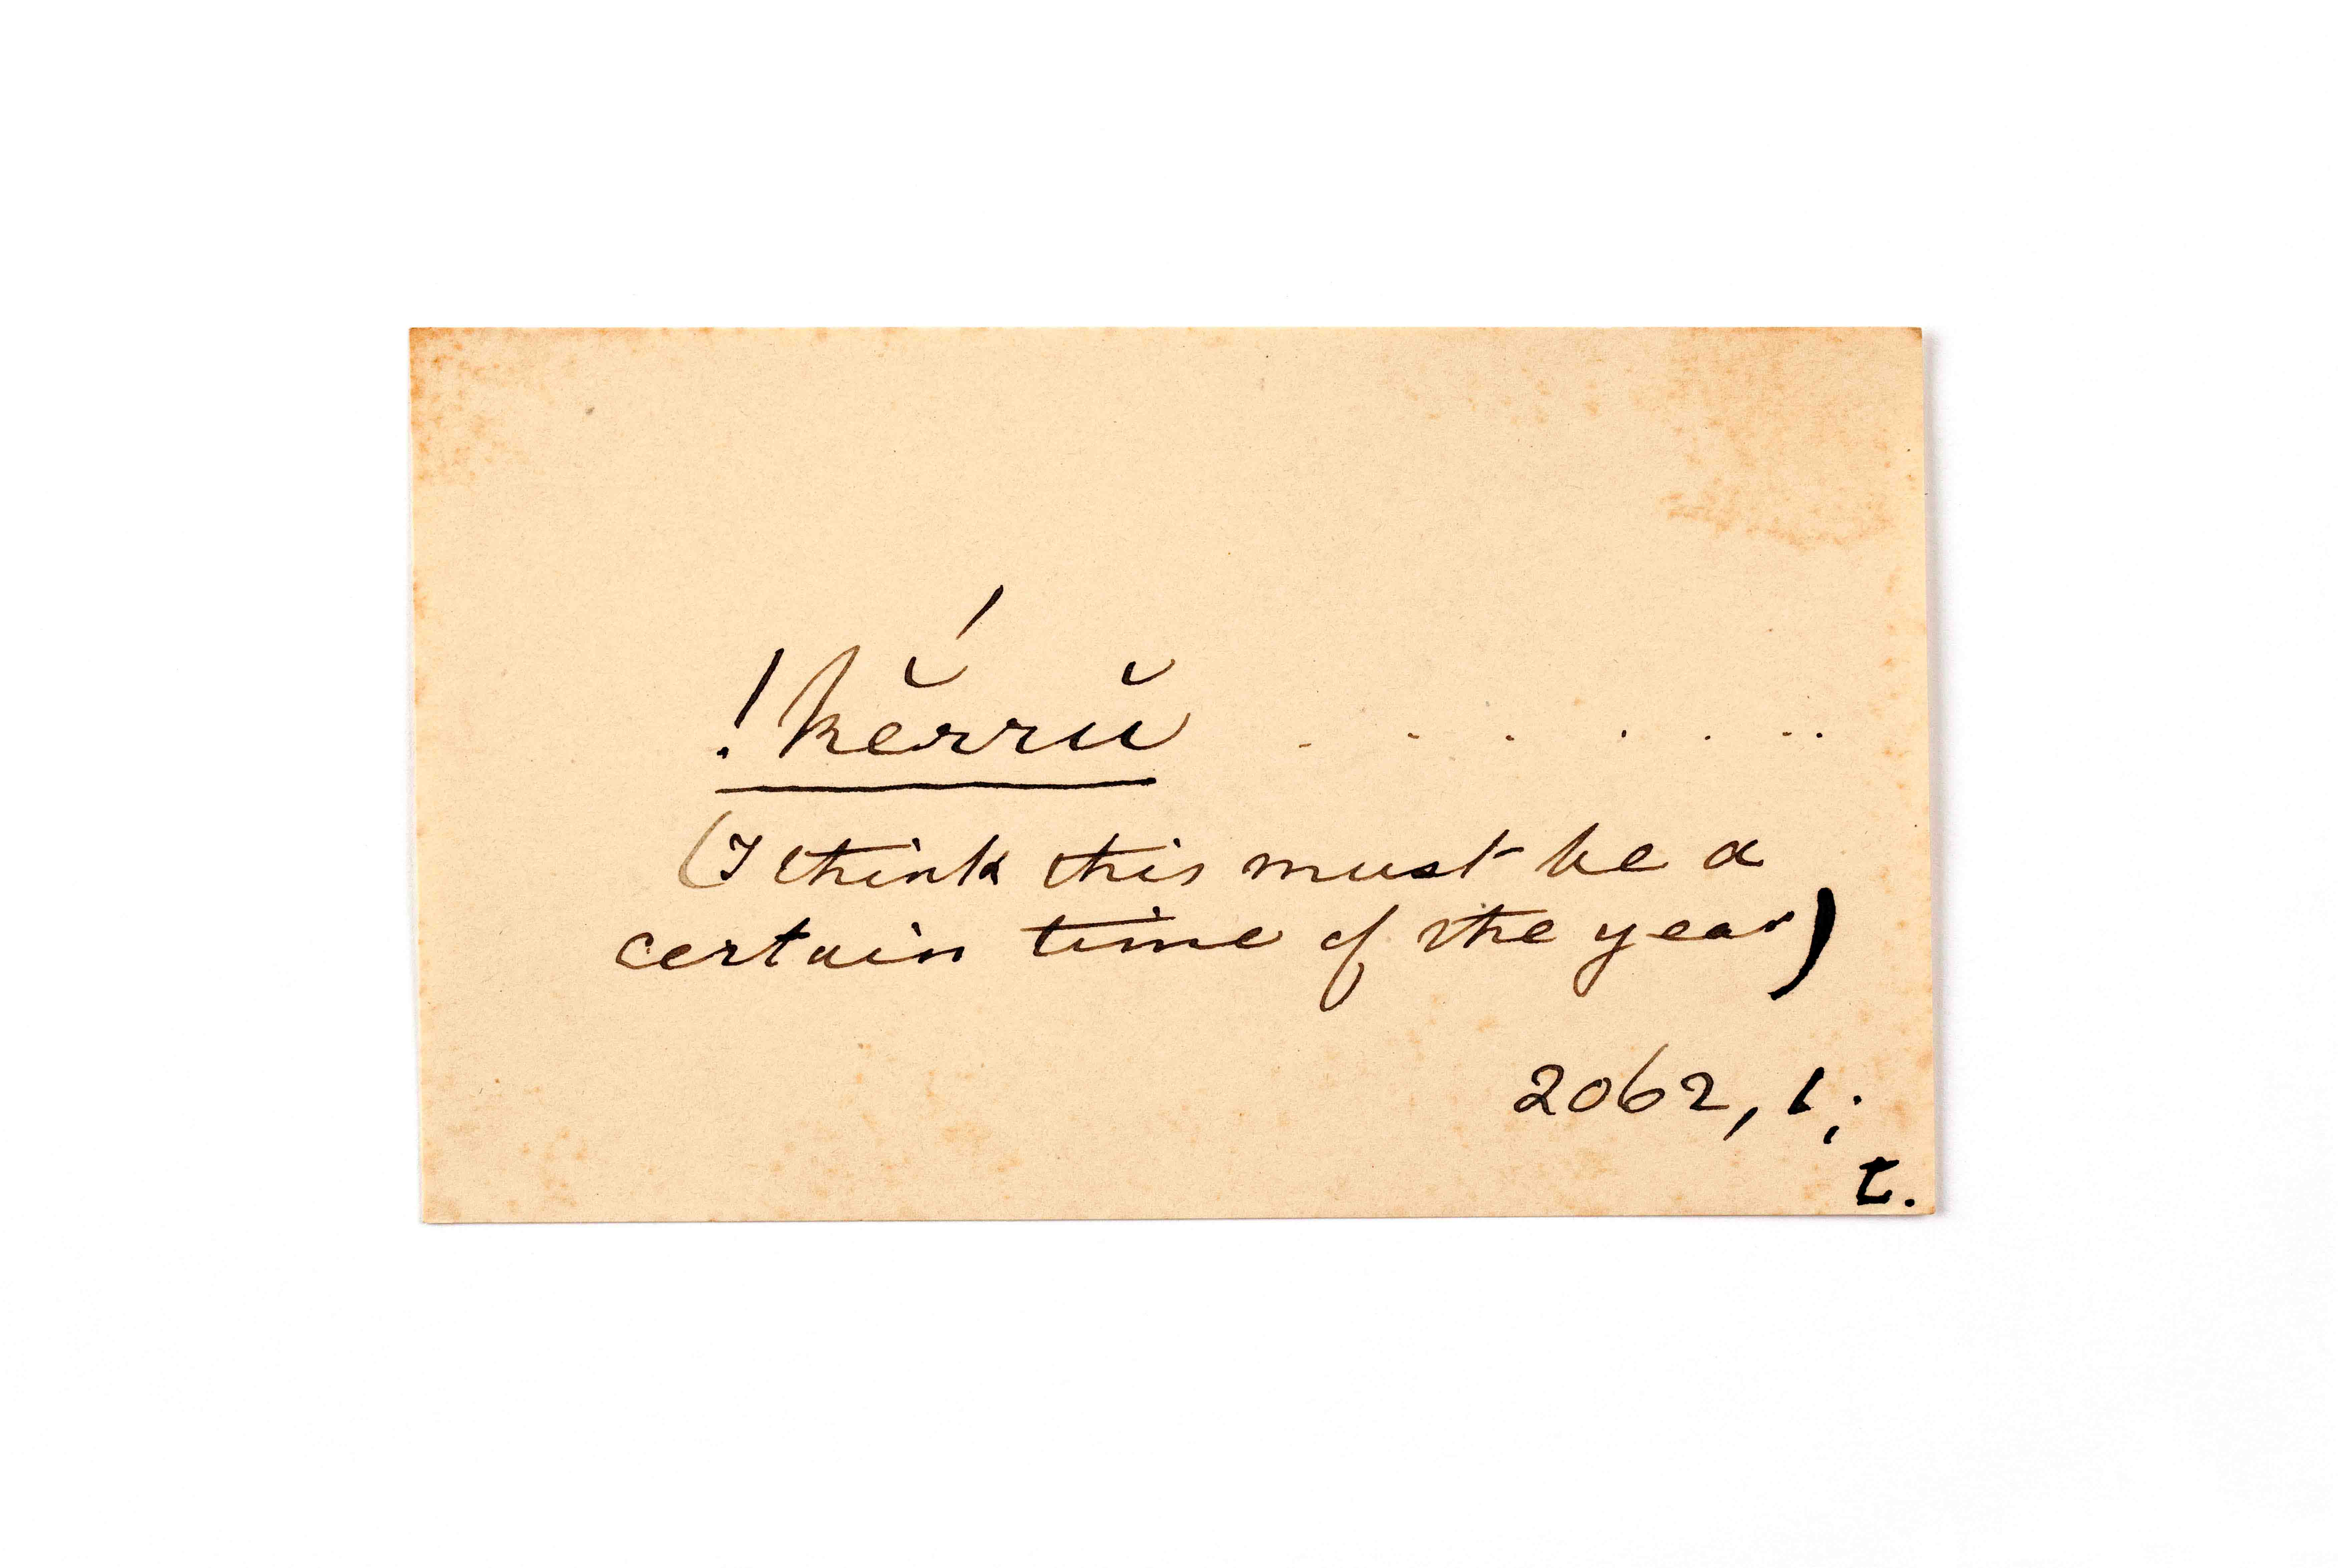 !kĕ́rrŭ . . . . . . .
(I think this must be a
certain time of the year)
2062, 1;
t.